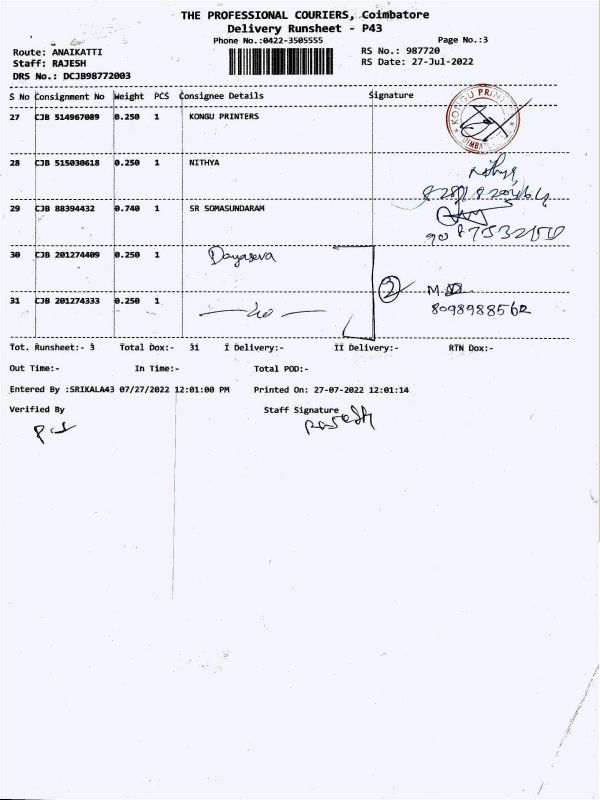 THE PROFESSIONAL COURIERS, Coimbatore
Delivery Runsheet - P43
Phone No.:0422-3505555 Page No.:3
Route: ANAIKATTI RS No.: 987720
Staff: RAJESH RS Date: 27-Jul-2022
DRS No.: DCJB98772003
S No Consignment No Weight PCS Consignee Details Signature
27 CJB 514967089 0.250 1 KONGU PRINTERS
KONGU PRIN
28 CJB 515030618 0.250 1 NITHYA
Nithya
29 CJB 88394432 0.740 1 SR SOMASUNDARAM
30 CJB 201274409 0.250 1 Dayaseva
2 M.
31 CJB 201274333 0.250 1
8098988562
Tot. Runsheet:- 3 Total Dox:- 31 I Delivery:- II Delivery:- RTN Dox:-
Out Time:- In Time:- Total POD:-
Entered By :SRIKALA43 07/27/2022 12:01:00 PM Printed On: 27-07-2022 12:01:14
Verified By Staff Signature
Rajesh